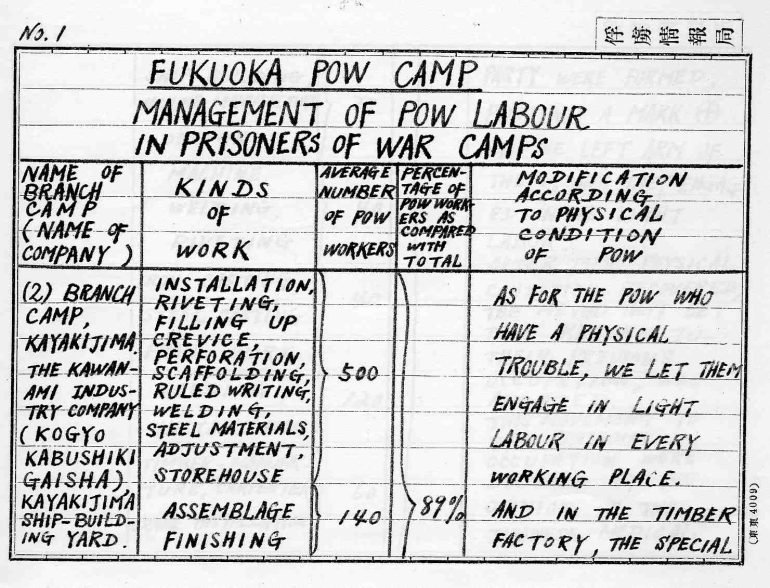 No. 1
俘虜情報局
FUKUOKA POW CAMP
MANAGEMENT OF POW LABOUR
IN PRISONERS OF WAR CAMPS
NAME OF
BRANCH
CAMP
(NAME OF
COMPANY)
KINDS
OF
WORK
AVERAGE
NUMBER
OF POW
WORKERS
PERCEN-
TAGE OF
POW WORK-
ERS AS
COMPARED
WITH
TOTAL
MODIFICATION
ACCORDING
TO PHYSICAL
CONDITION
OF POW
(2) BRANCH
CAMP,
KAYAKIJIMA.
THE KAWAN-
AMI INDUS-
TRY COMPANY
(KOGYO
KABUSHIKI
GAISHA)
KAYAKIJIMA
SHIP-BUILD-
ING YARD.
INSTALLATION,
RIVETING,
FILLING UP
CREVICE,
PERFORATION,
SCAFFOLDING,
RULED WRITING,
WELDING,
STEEL MATERIALS,
ADJUSTMENT,
STOREHOUSE
ASSEMBLAGE
FINISHING
500
140
89%
AS FOR THE POW WHO
HAVE A PHYSICAL
TROUBLE, WE LET THEM
ENGAGE IN LIGHT
LABOUR IN EVERY
WORKING PLACE.
AND IN THE TIMBER
FACTORY, THE SPECIAL
(東京 4009)